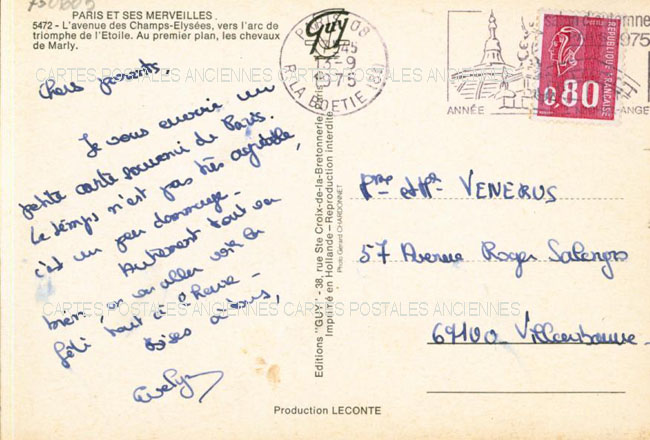 PARIS ET SES MERVEILLES.
5472 - L'avenue des Champs-Elysées, vers l'arc de
triomphe de l'Etoile. Au premier plan, les chevaux
de Marly.
Chers parents.
Je vous envoie un
petite carte souvenir de Paris.
Le temps n'est pas très agréable,
c'est un peu dommage.
Autrement tout va
bien, on va aller voir la
tout à l'heure -
Bises à tous,
Evelyn
Guy
Editions "GUY" - 38, rue Ste Croix-de-la-Bretonnerie, Paris
Imprimé en Hollande - Reproduction interdite
Photo Gérard CHARDONNET
PARIS 08
45
13-9
1975
R. LA BOETIE (8E)
1975
ANNÉE
ANGE
REPUBLIQUE FRANÇAISE
0,80
Mme et Mr VENERUS
57 Avenue Roger Salengro
69100 Villeurbanne.
CARTES POSTALES ANCIENNES CARTES POSTALES ANCIENNES
CARTES POSTALES ANCIENNES CARTES POSTALES ANCIENNES
Production LECONTE